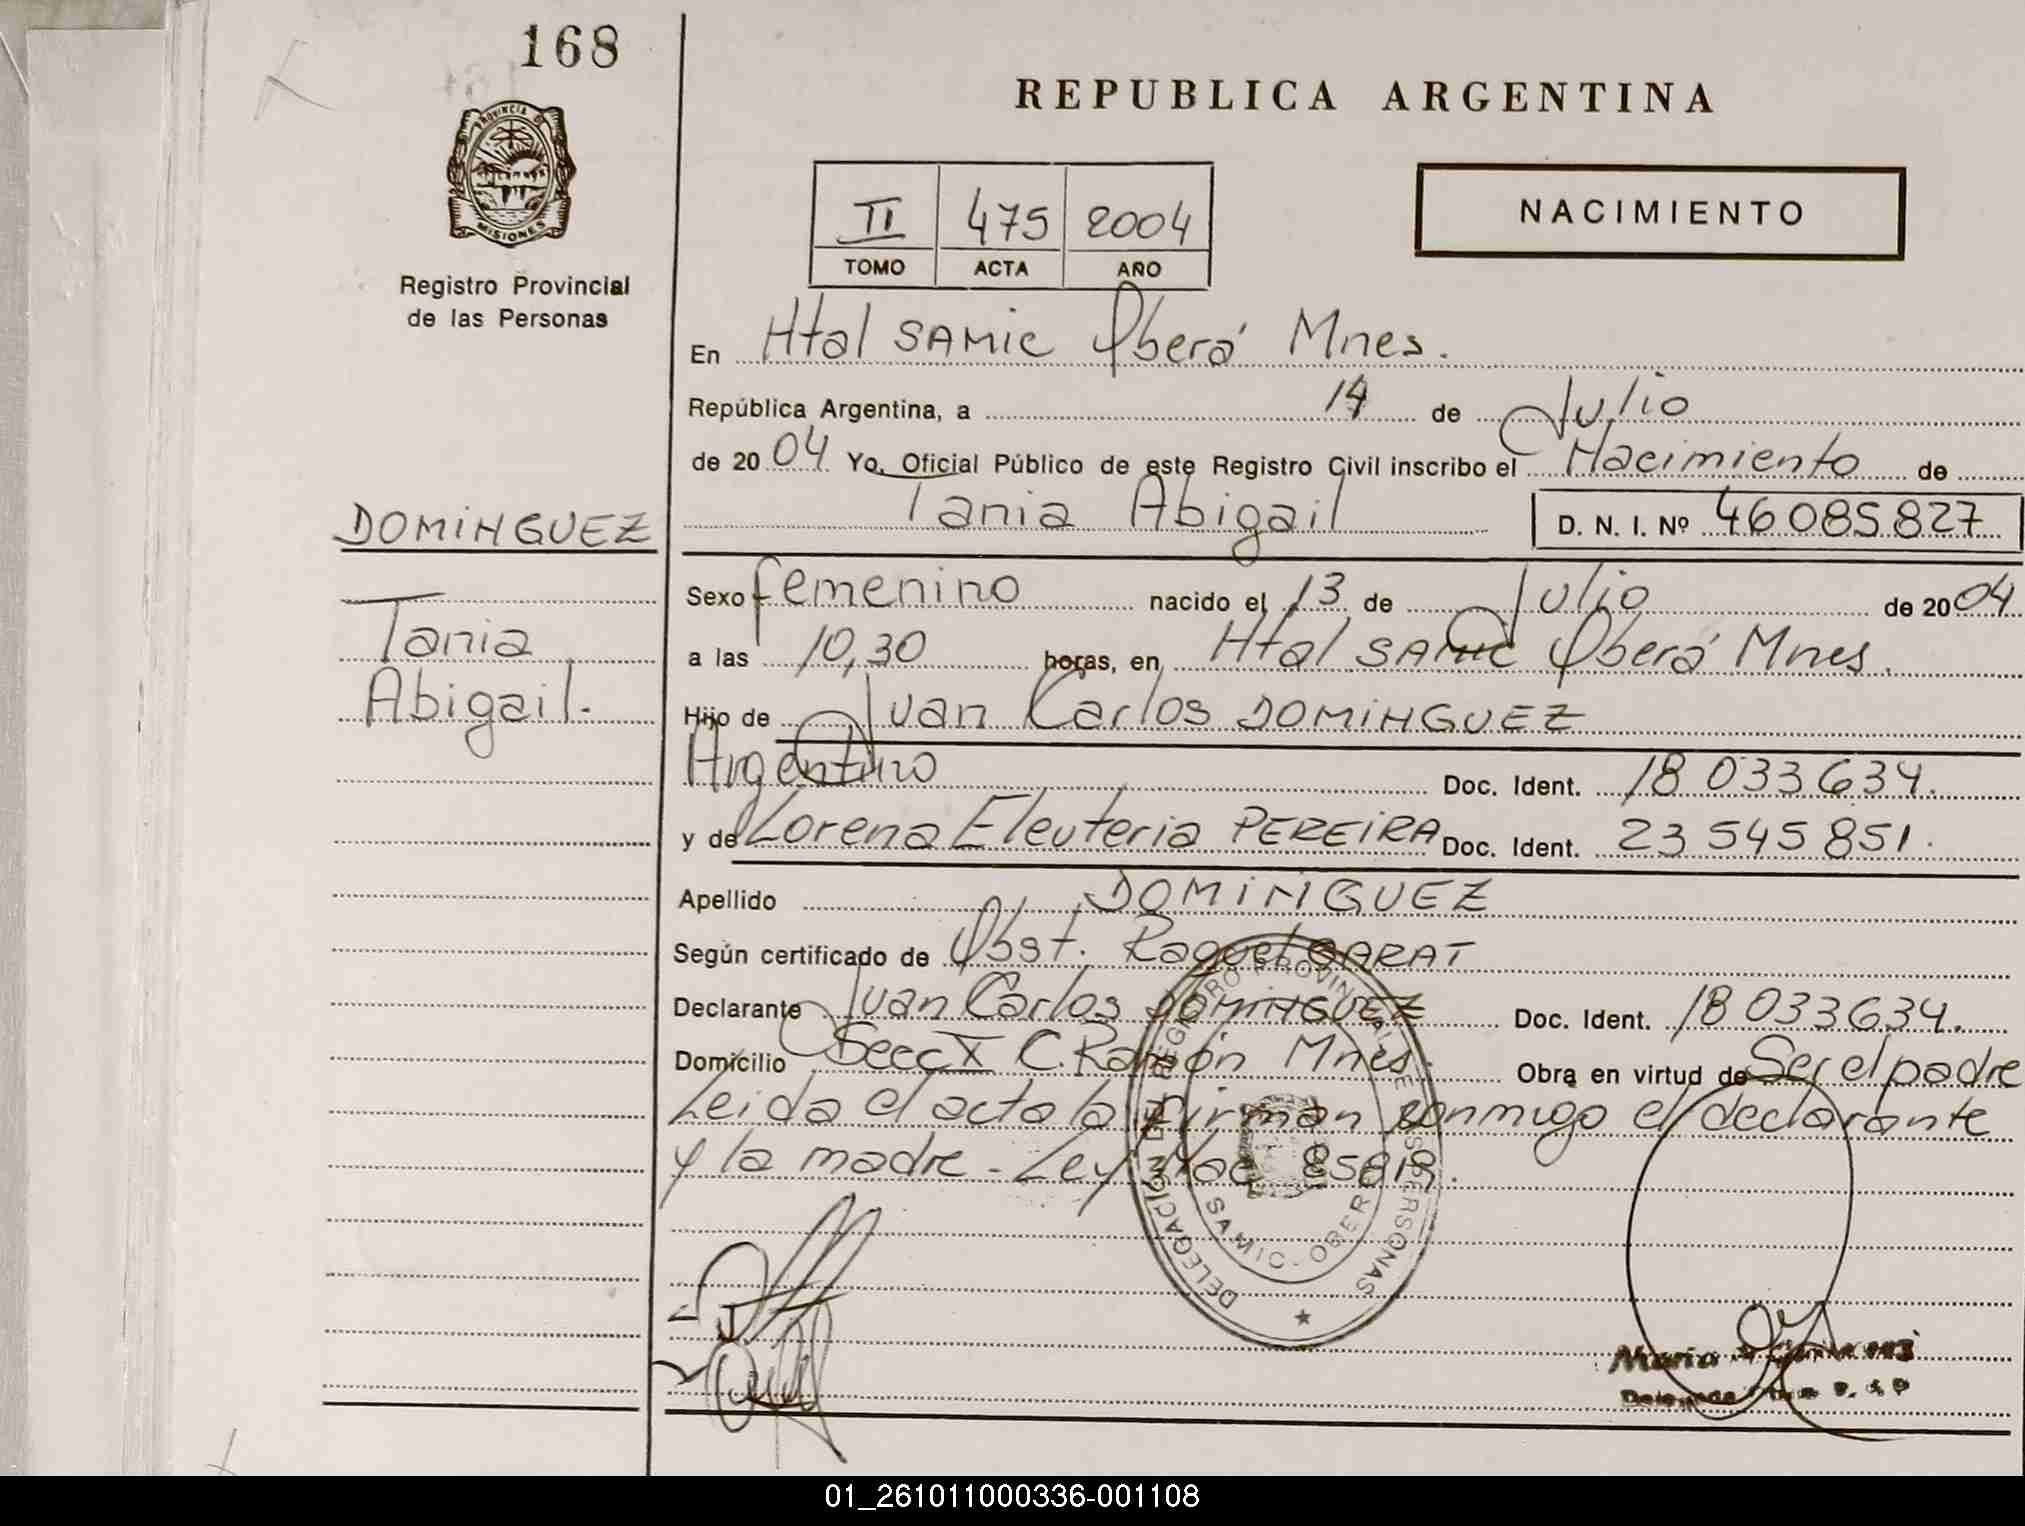 168
REPUBLICA ARGENTINA
PROVINCIA DE
MISIONES
Registro Provincial
de las Personas
II 475 2004
TOMO ACTA AÑO
NACIMIENTO
En Htal SAMIC Oberá Mnes.
República Argentina, a 14 de Julio
de 2004 Yo, Oficial Público de este Registro Civil inscribo el Nacimiento de
Tania Abigail D. N. I. Nº 46085827
DOMINGUEZ
Tania
Abigail.
Sexo femenino nacido el 13 de Julio de 2004
a las 10,30 horas, en Htal SAMIC Oberá Mnes.
Hijo de Juan Carlos DOMINGUEZ
Argentino Doc. Ident. 18 033634.
y de Lorena Eleuteria PEREIRA Doc. Ident. 23 545 851.
Apellido DOMINGUEZ
Según certificado de Obst. Raquel GARAT
Declarante Juan Carlos DOMINGUEZ Doc. Ident. 18 033634.
Domicilio Secc X C. Ramón Mnes. Obra en virtud de Ser el padre
Leida el acta la firman conmigo el declarante
y la madre - Ley Nac
DELEGACIÓN DEL REGISTRO PROVINCIAL DE LAS PERSONAS
SAMIC - OBERA
Maria
01_261011000336-001108